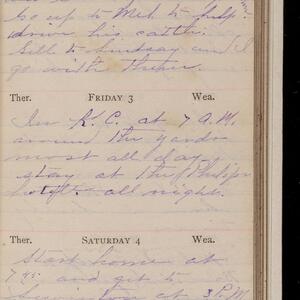 go up to Mel to help
drive his cattle.
Gill to Lindsay and I
go with them.
Ther. FRIDAY 3 Wea.
In K. C. at 7 A.M.
around the yards
most all day
stay at the Philips
hotel all night.
Ther. SATURDAY 4 Wea.
Start home at
and get to
at 3 P.M